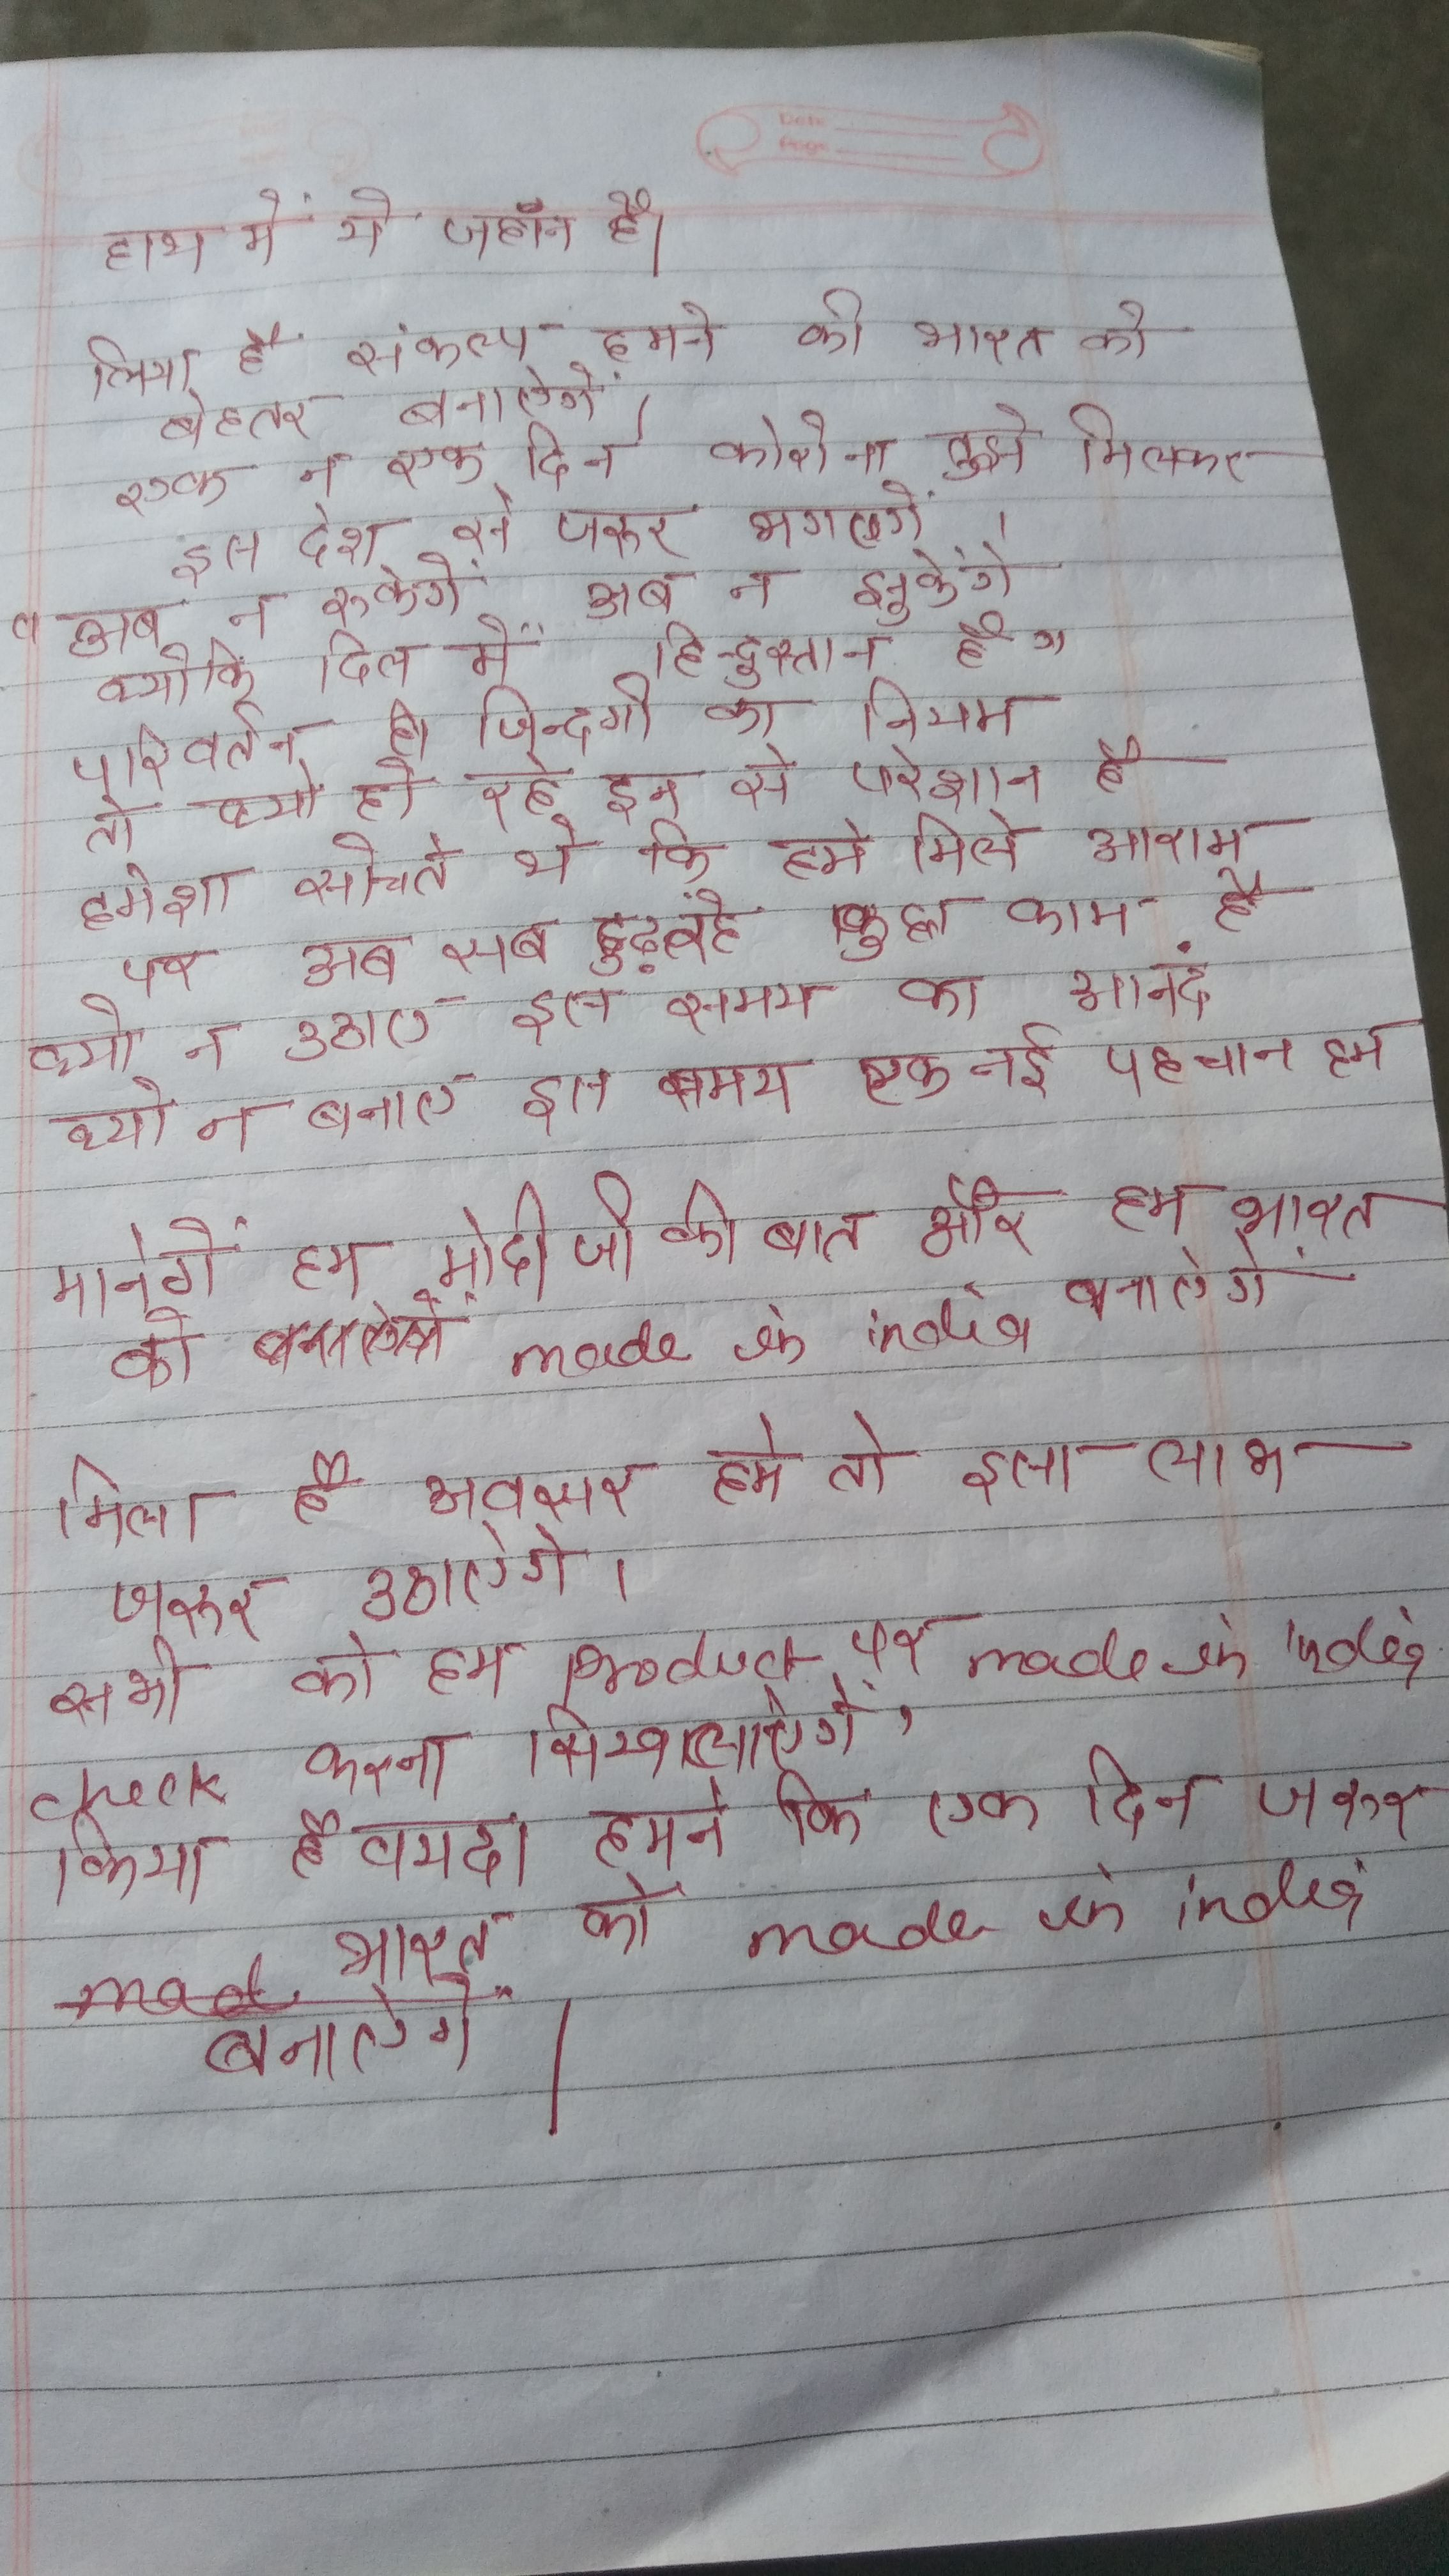 Date
Page
हाथ में ये जहाँन है।
लिया है संकल्प हमने की भारत को
बेहतर बनाऐगें।
एक न एक दिन कोरोना तुझे मिलकर
इस देश से जरूर भगाएगें।
" अब न रूकेगें अब न झुकेंगे
क्योकि दिल में हिन्दुस्तान है"
परिवर्तन ही जिन्दगी का नियम
तो क्यो हो रहे इन से परेशान है
हमेशा सोचते थे कि हमे मिले आराम
पर अब सब ढुढ़ रहे कुछ काम है
क्यो न उठाए इस समय का आनदं
क्यो न बनाए इस समय एक नई पहचान हम
मानेगें हम मोदी जी की बात और हम भारत
को made in india बनाऐगें
मिला है अवसर हमे तो इसा लाभ
जरूर उठाऐगे।
सभी को हम Product पर made in india
check करना सिखालाऐगें,
किया है वायदा हमने कि एक दिन जरूर
mad भारत को made in india
बनाऐगें।